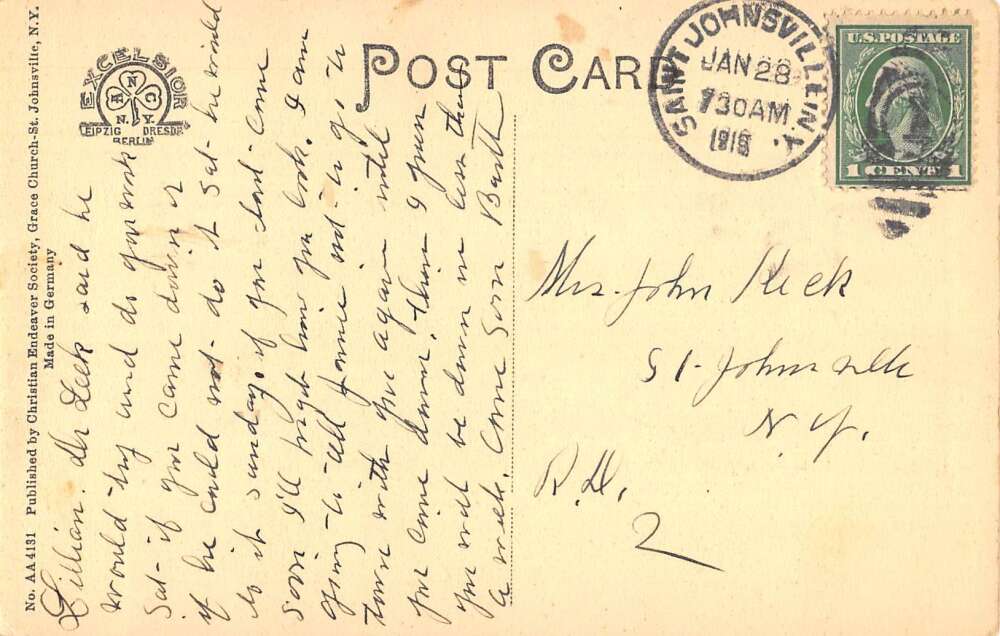 No. AA4131 Published by Christian Endeaver Society, Grace Church-St. Johnsville, N.Y.
Made in Germany
EXCELSIOR
A N C
N.Y.
LEIPZIG DRESDEN
BERLIN
POST CARD
SAINT JOHNSVILLE N.Y.
JAN 28
730AM
1916
U.S. POSTAGE
1 CENT 1
Lillian. Mr Leek said he
would try and do your work
Sat- if you came down or
if he could not- do it Sat- he would
do it Sunday. if you don't come
soon I'll how you look. I am
going to tell Jonnie not- to go to
town with you again until
you come down, then I guess
you will be down in less than
a week. Come soon
Mrs. John Keck
St. Johnsville
N.Y.
R.D.
2